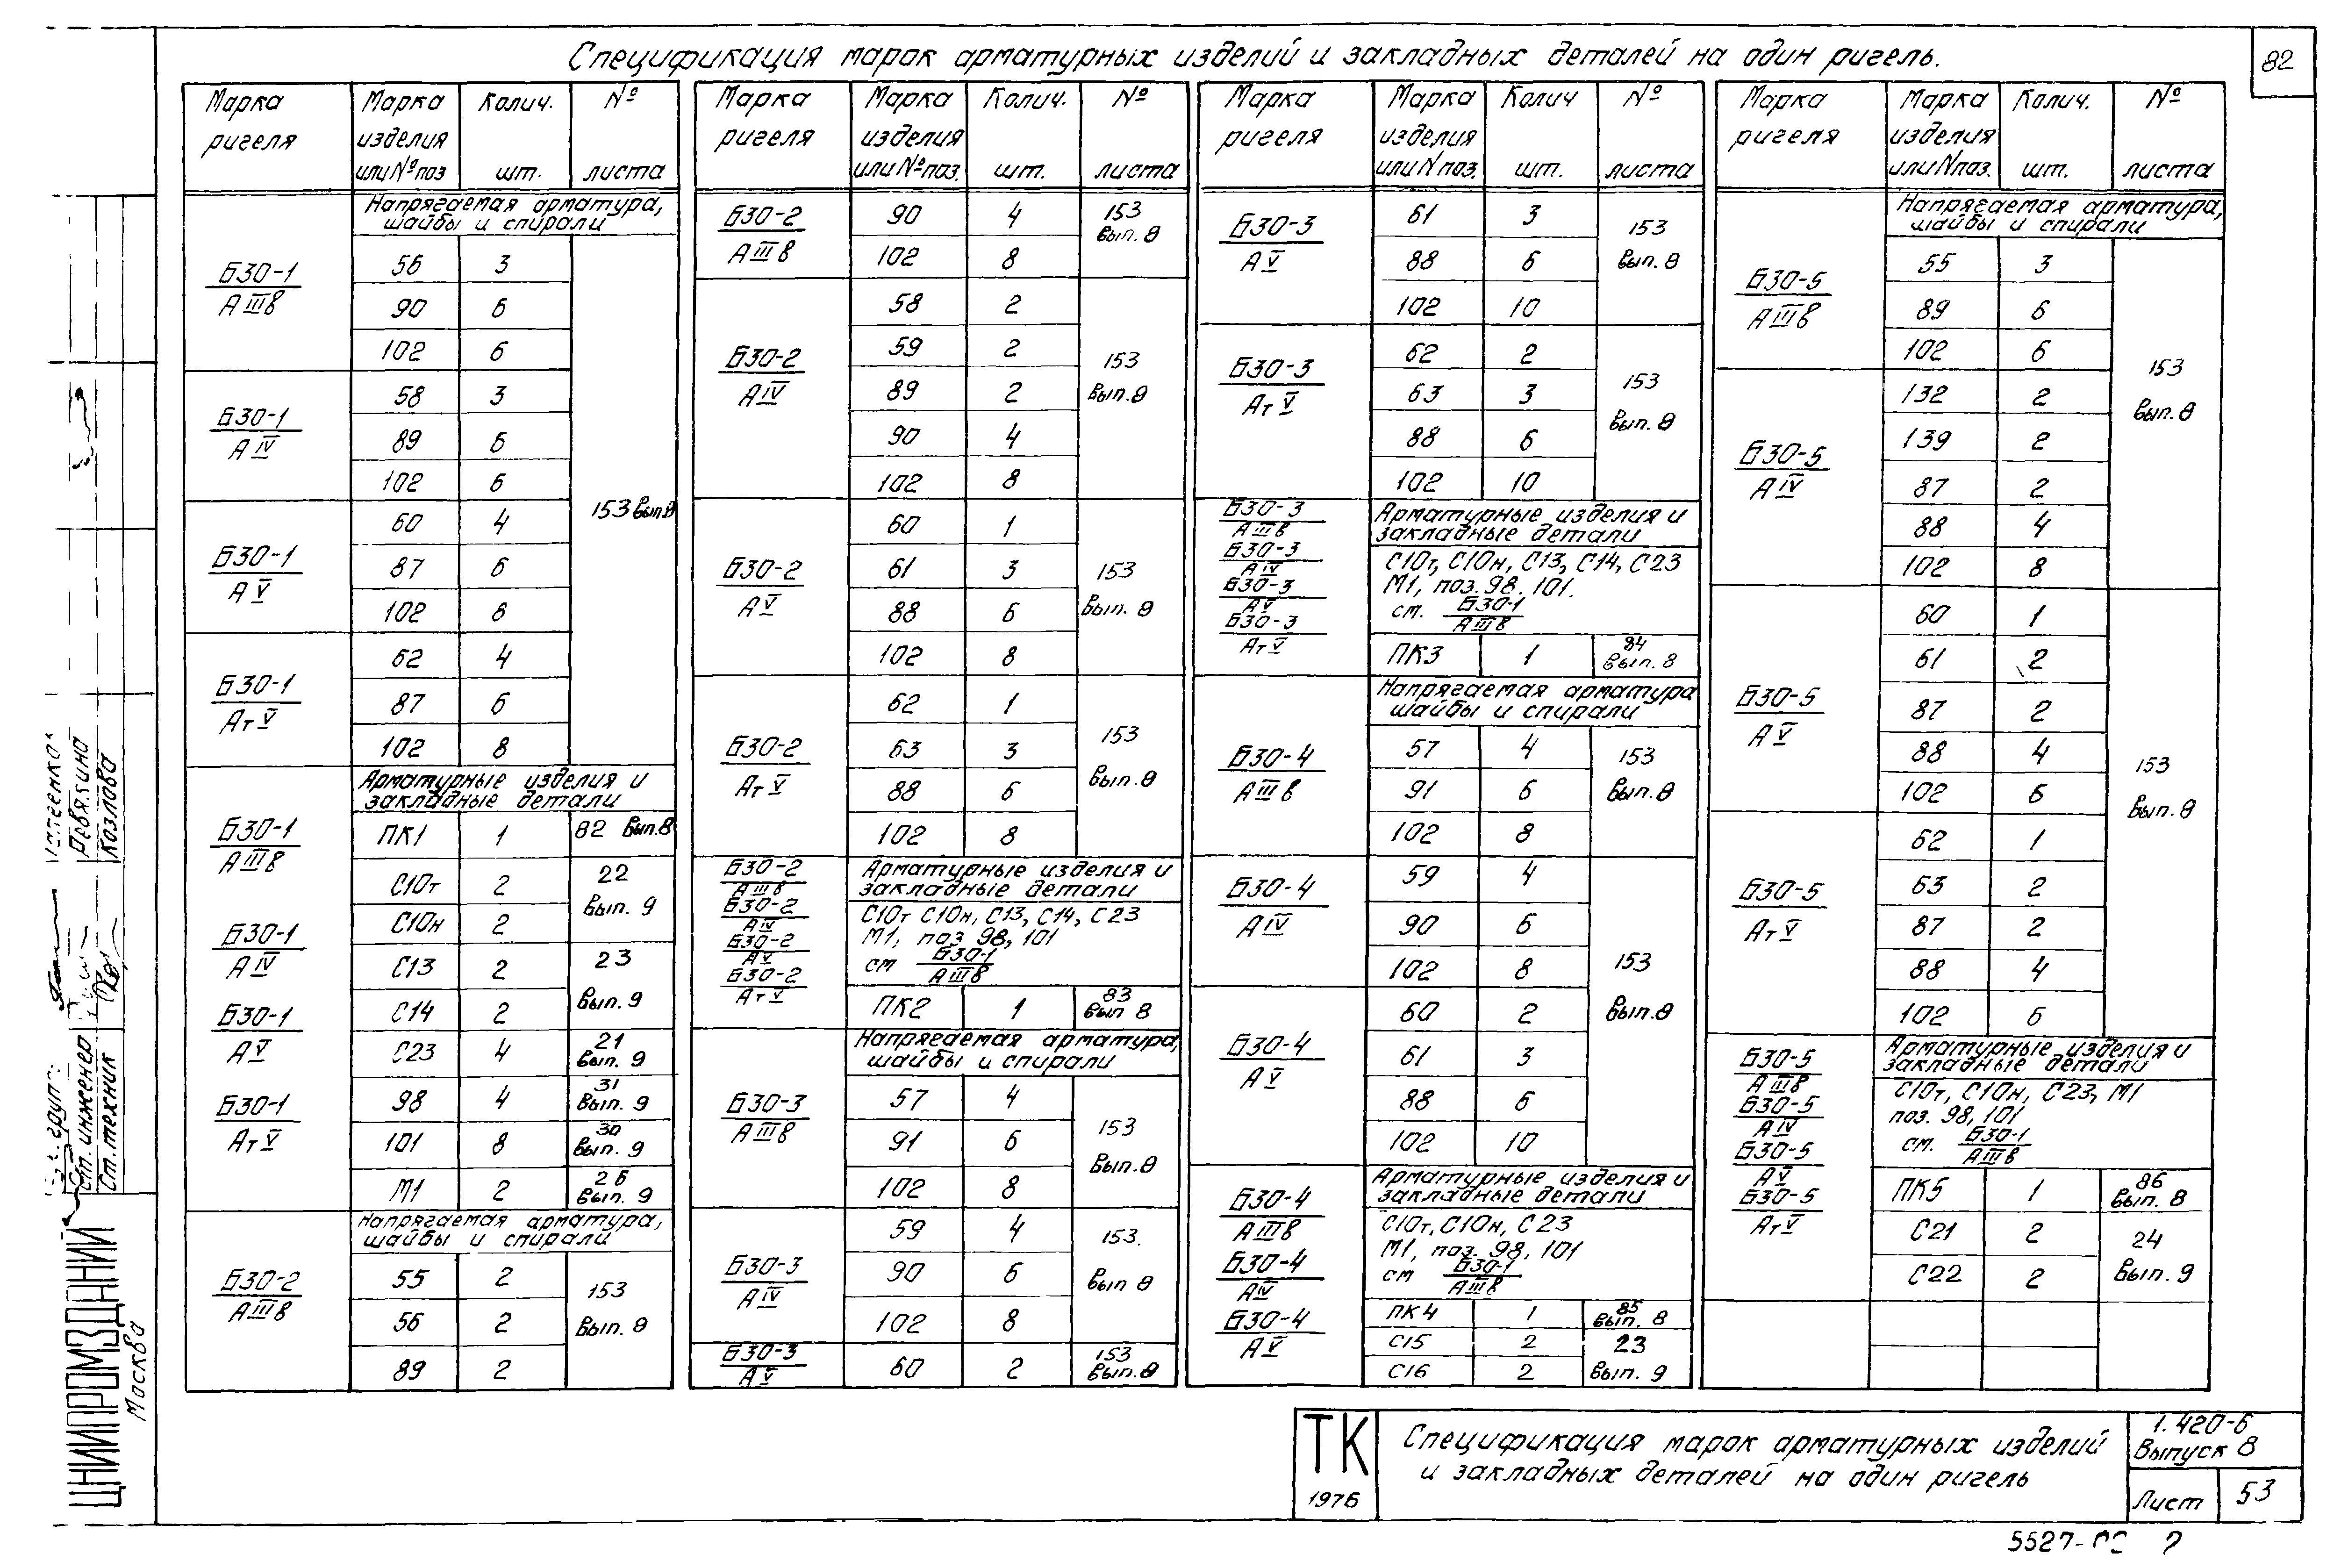 82
Спецификация марок арматурных изделий и закладных деталей на один ригель.
Марка ригеля | Марка изделия или № поз | Колич. шт. | № листа
Напрягаемая арматура, шайбы и спирали
Б30-1 АIIIв | 56 | 3 | 153 Вып.8
90 | 6
102 | 6
Б30-1 АIV | 58 | 3
89 | 6
102 | 6
Б30-1 АV | 60 | 4
87 | 6
102 | 8
Б30-1 АтV | 62 | 4
87 | 6
102 | 8
Арматурные изделия и закладные детали
Б30-1 АIIIв
Б30-1 АIV
Б30-1 АV
Б30-1 АтV
ПК1 | 1 | 82 Вып.8
С10т | 2 | 22 Вып. 9
С10н | 2
С13 | 2 | 23 Вып. 9
С14 | 2
С23 | 4 | 21 Вып. 9
98 | 4 | 31 Вып. 9
101 | 8 | 30 Вып. 9
М1 | 2 | 26 Вып. 9
Напрягаемая арматура, шайбы и спирали
Б30-2 АIIIв | 55 | 2 | 153 Вып. 8
56 | 2
89 | 2
Марка ригеля | Марка изделия или № поз. | Колич. шт. | № листа
Б30-2 АIIIв | 90 | 4 | 153 Вып. 8
102 | 8
Б30-2 АIV | 58 | 2 | 153 Вып. 8
59 | 2
89 | 2
90 | 4
102 | 8
Б30-2 АV | 60 | 1 | 153 Вып. 8
61 | 3
88 | 6
102 | 8
Б30-2 АтV | 62 | 1 | 153 Вып. 8
63 | 3
88 | 6
102 | 8
Б30-2 АIIIв
Б30-2 АIV
Б30-2 АV
Б30-2 АтV
Арматурные изделия и закладные детали
С10т С10н, С13, С14, С23
М1, поз 98, 101
см Б30-1 АIIIв
ПК2 | 1 | 83 Вып 8
Напрягаемая арматура, шайбы и спирали
Б30-3 АIIIв | 57 | 4 | 153 Вып. 8
91 | 6
102 | 8
Б30-3 АIV | 59 | 4 | 153. Вып 8
90 | 6
102 | 8
Б30-3 АV | 60 | 2 | 153 Вып. 8
Марка ригеля | Марка изделия или N поз. | Колич шт. | № листа
Б30-3 АV | 61 | 3 | 153 Вып. 8
88 | 6
102 | 10
Б30-3 АтV | 62 | 2 | 153 Вып. 8
63 | 3
88 | 6
102 | 10
Б30-3 АIIIв
Б30-3 АIV
Б30-3 АV
Б30-3 АтV
Арматурные изделия и закладные детали
С10т, С10н, С13, С14, С23
М1, поз. 98. 101.
см. Б30-1 АIIIв
ПК3 | 1 | 84 Вып. 8
Напрягаемая арматура шайбы и спирали
Б30-4 АIIIв | 57 | 4 | 153 Вып. 8
91 | 6
102 | 8
Б30-4 АIV | 59 | 4 | 153 Вып. 8
90 | 6
102 | 8
Б30-4 АV | 60 | 2
61 | 3
88 | 6
102 | 10
Б30-4 АIIIв
Б30-4 АIV
Б30-4 АV
Арматурные изделия и закладные детали
С10т, С10н, С23
М1, поз. 98, 101
см Б30-1 АIIIв
ПК4 | 1 | 85 Вып. 8
С15 | 2 | 23 Вып. 9
С16 | 2
Марка ригеля | Марка изделия или N поз. | Колич. шт. | № листа
Напрягаемая арматура, шайбы и спирали
Б30-5 АIIIв | 55 | 3 | 153 Вып. 8
89 | 6
102 | 6
Б30-5 АIV | 132 | 2
139 | 2
87 | 2
88 | 4
102 | 8
Б30-5 АV | 60 | 1 | 153 Вып. 8
61 | 2
87 | 2
88 | 4
102 | 6
Б30-5 АтV | 62 | 1
63 | 2
87 | 2
88 | 4
102 | 6
Б30-5 АIIIв
Б30-5 АIV
Б30-5 АV
Б30-5 АтV
Арматурные изделия и закладные детали
С10т, С10н, С23, М1
поз. 98, 101
см. Б30-1 АIIIв
ПК5 | 1 | 86 Вып. 8
С21 | 2 | 24 Вып. 9
С22 | 2
Ст. инженер
Ревякина
Ст. техник
Козлова
ЦНИИПРОМЗДАНИЙ
Москва
ТК
1976
Спецификация марок арматурных изделий
и закладных деталей на один ригель
1.420-6
Выпуск 8
Лист 53